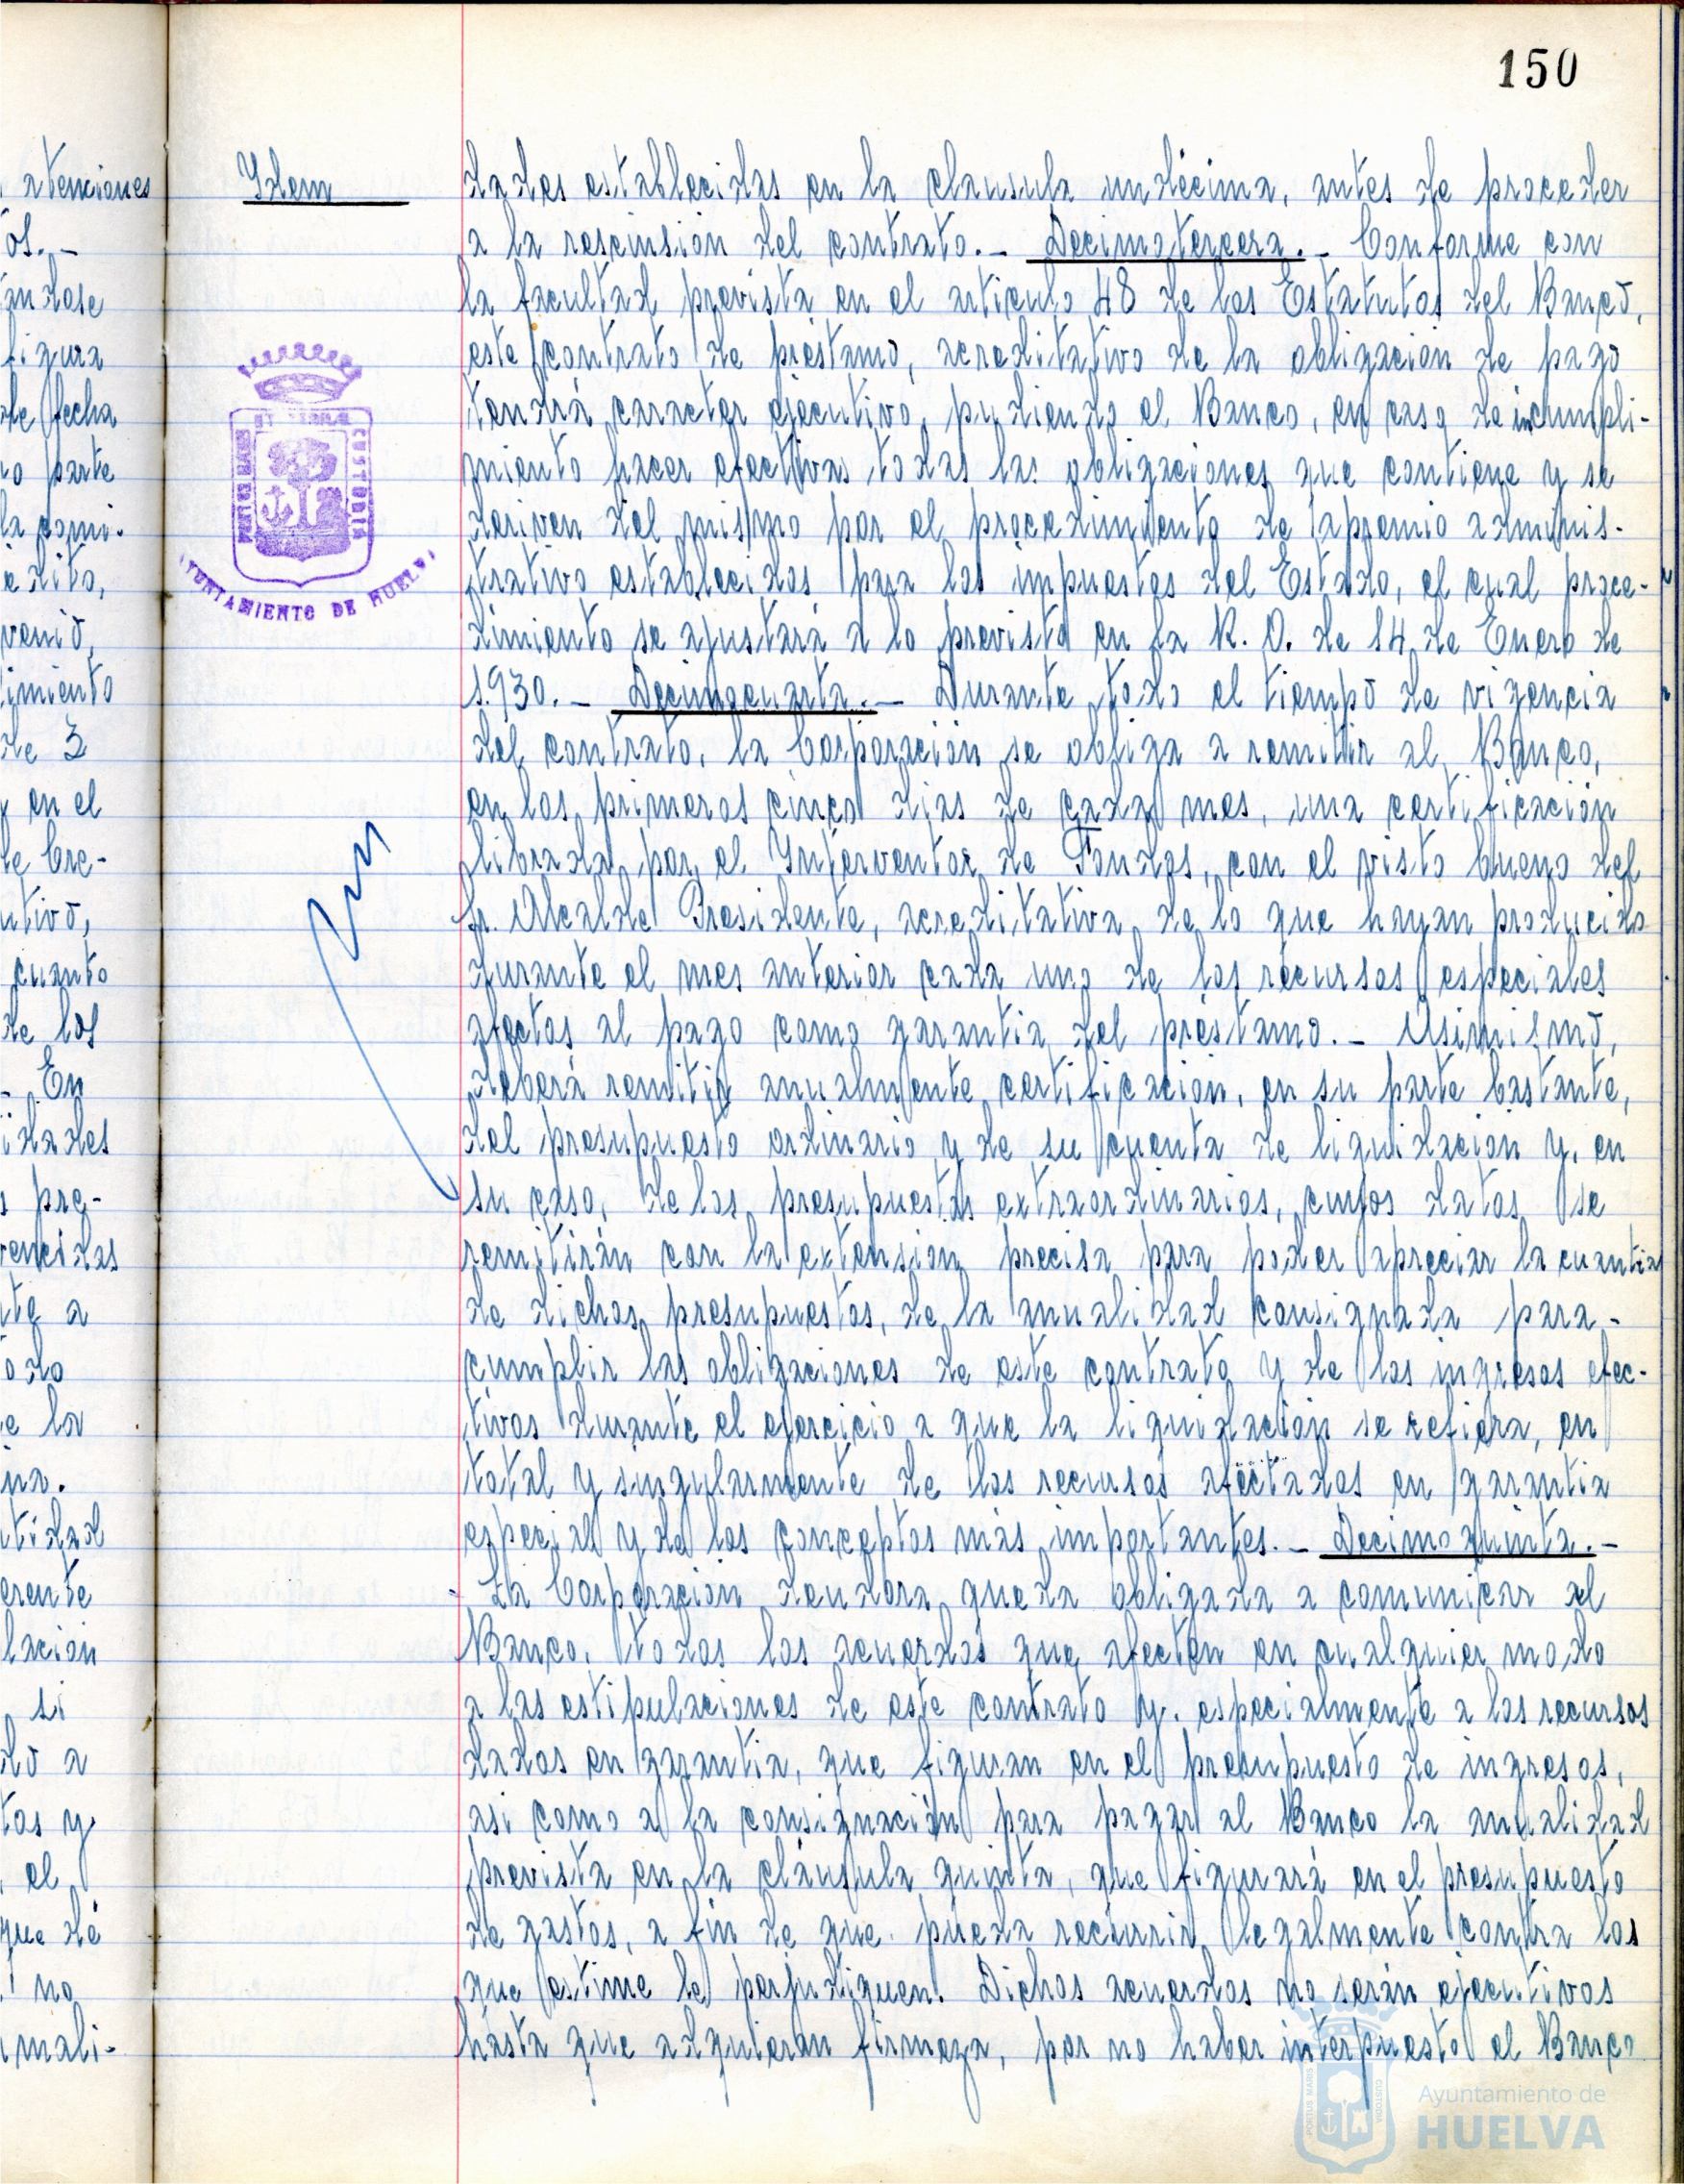 150
atenciones
os.-
andose
figura
de fecha
o parte
la comi-
edito,
venio,
cimiento
de 3
y en el
de Cre-
utivo,
cuanto
de los
- En
idades
s pre-
vencidas
te a
odo
e la
na.
ntidad
erente
lacion
si
do a
tos y
, el
que de
no
mali-
Ydem
PORTUS MARIS ET TERRAE CUSTODIA
AYUNTAMIENTO DE HUELVA
dades establecidas en la clausula undécima, antes de proceder
a la rescinsión del contrato.- Decimotercera.- Conforme con
la facultad prevista en el articulo 48 de los Estatutos del Banco,
este contrato de prestamo, acreditativo de la obligación de pago
tendrá caracter ejecutivo, pudiendo el Banco, en caso de incumpli-
miento hacer efectivas todas las obligaciones que contiene y se
deriven del mismo por el procedimiento de apremio adminis-
trativo establecidos para los impuestos del Estado, el cual proce-
dimiento se ajustará a lo previsto en la R. O. de 14 de Enero de
1.930.- Decimocuarta.- Durante todo el tiempo de vigencia
del contrato, la Corporación se obliga a remitir al Banco,
en los primeros cinco dias de cada mes, una certificación
librada por el Ynterventor de Fondos, con el visto bueno del
Sr. Alcalde Presidente, acreditativa de lo que hayan producido
durante el mes anterior cada uno de los recursos especiales
afectos al pago como garantia del préstamo.- Asimismo,
deberá remitir anualmente certificación, en su parte bastante,
del presupuesto ordinario y de su cuenta de liquidación y, en
su caso, de los presupuestos extraordinarios, cuyos datos se
remitirán con la extension precisa para poder apreciar la cuantia
de dichos presupuestos, de la anualidad consignada para-
cumplir las obligaciones de este contrato y de los ingresos efec-
tivos durante el ejercicio a que la liquidación se refiera, en
total y singularmente de los recursos afectados en garantia
especial y de los conceptos más importantes.- Decimoquinta.-
- La Corporación deudora queda obligada a comunicar al
Banco, todos los acuerdos que afecten en cualquier modo
a las estipulaciones de este contrato y, especialmente a los recursos
dados en garantia, que figuran en el presupuesto de ingresos,
asi como a la consignación para pagar al Banco la anualidad
prevista en la cláusula quinta, que figurará en el presupuesto
de gastos, a fin de que pueda recurrir legalmente contra los
que estime le perjudiquen. Dichos acuerdos no serán ejecutivos
hasta que adquieran firmeza, por no haber interpuesto el Banco
Ayuntamiento de
HUELVA